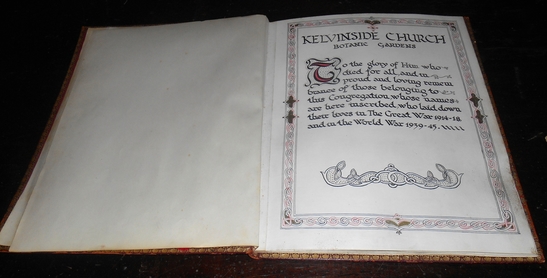 KELVINSIDE CHURCH
BOTANIC GARDENS
To the glory of Him who
died for all, and in
proud and loving remem
brance of those belonging to
this Congregation whose names
are here inscribed, who laid down
their lives in The Great War 1914-18
and in the World War 1939-45.